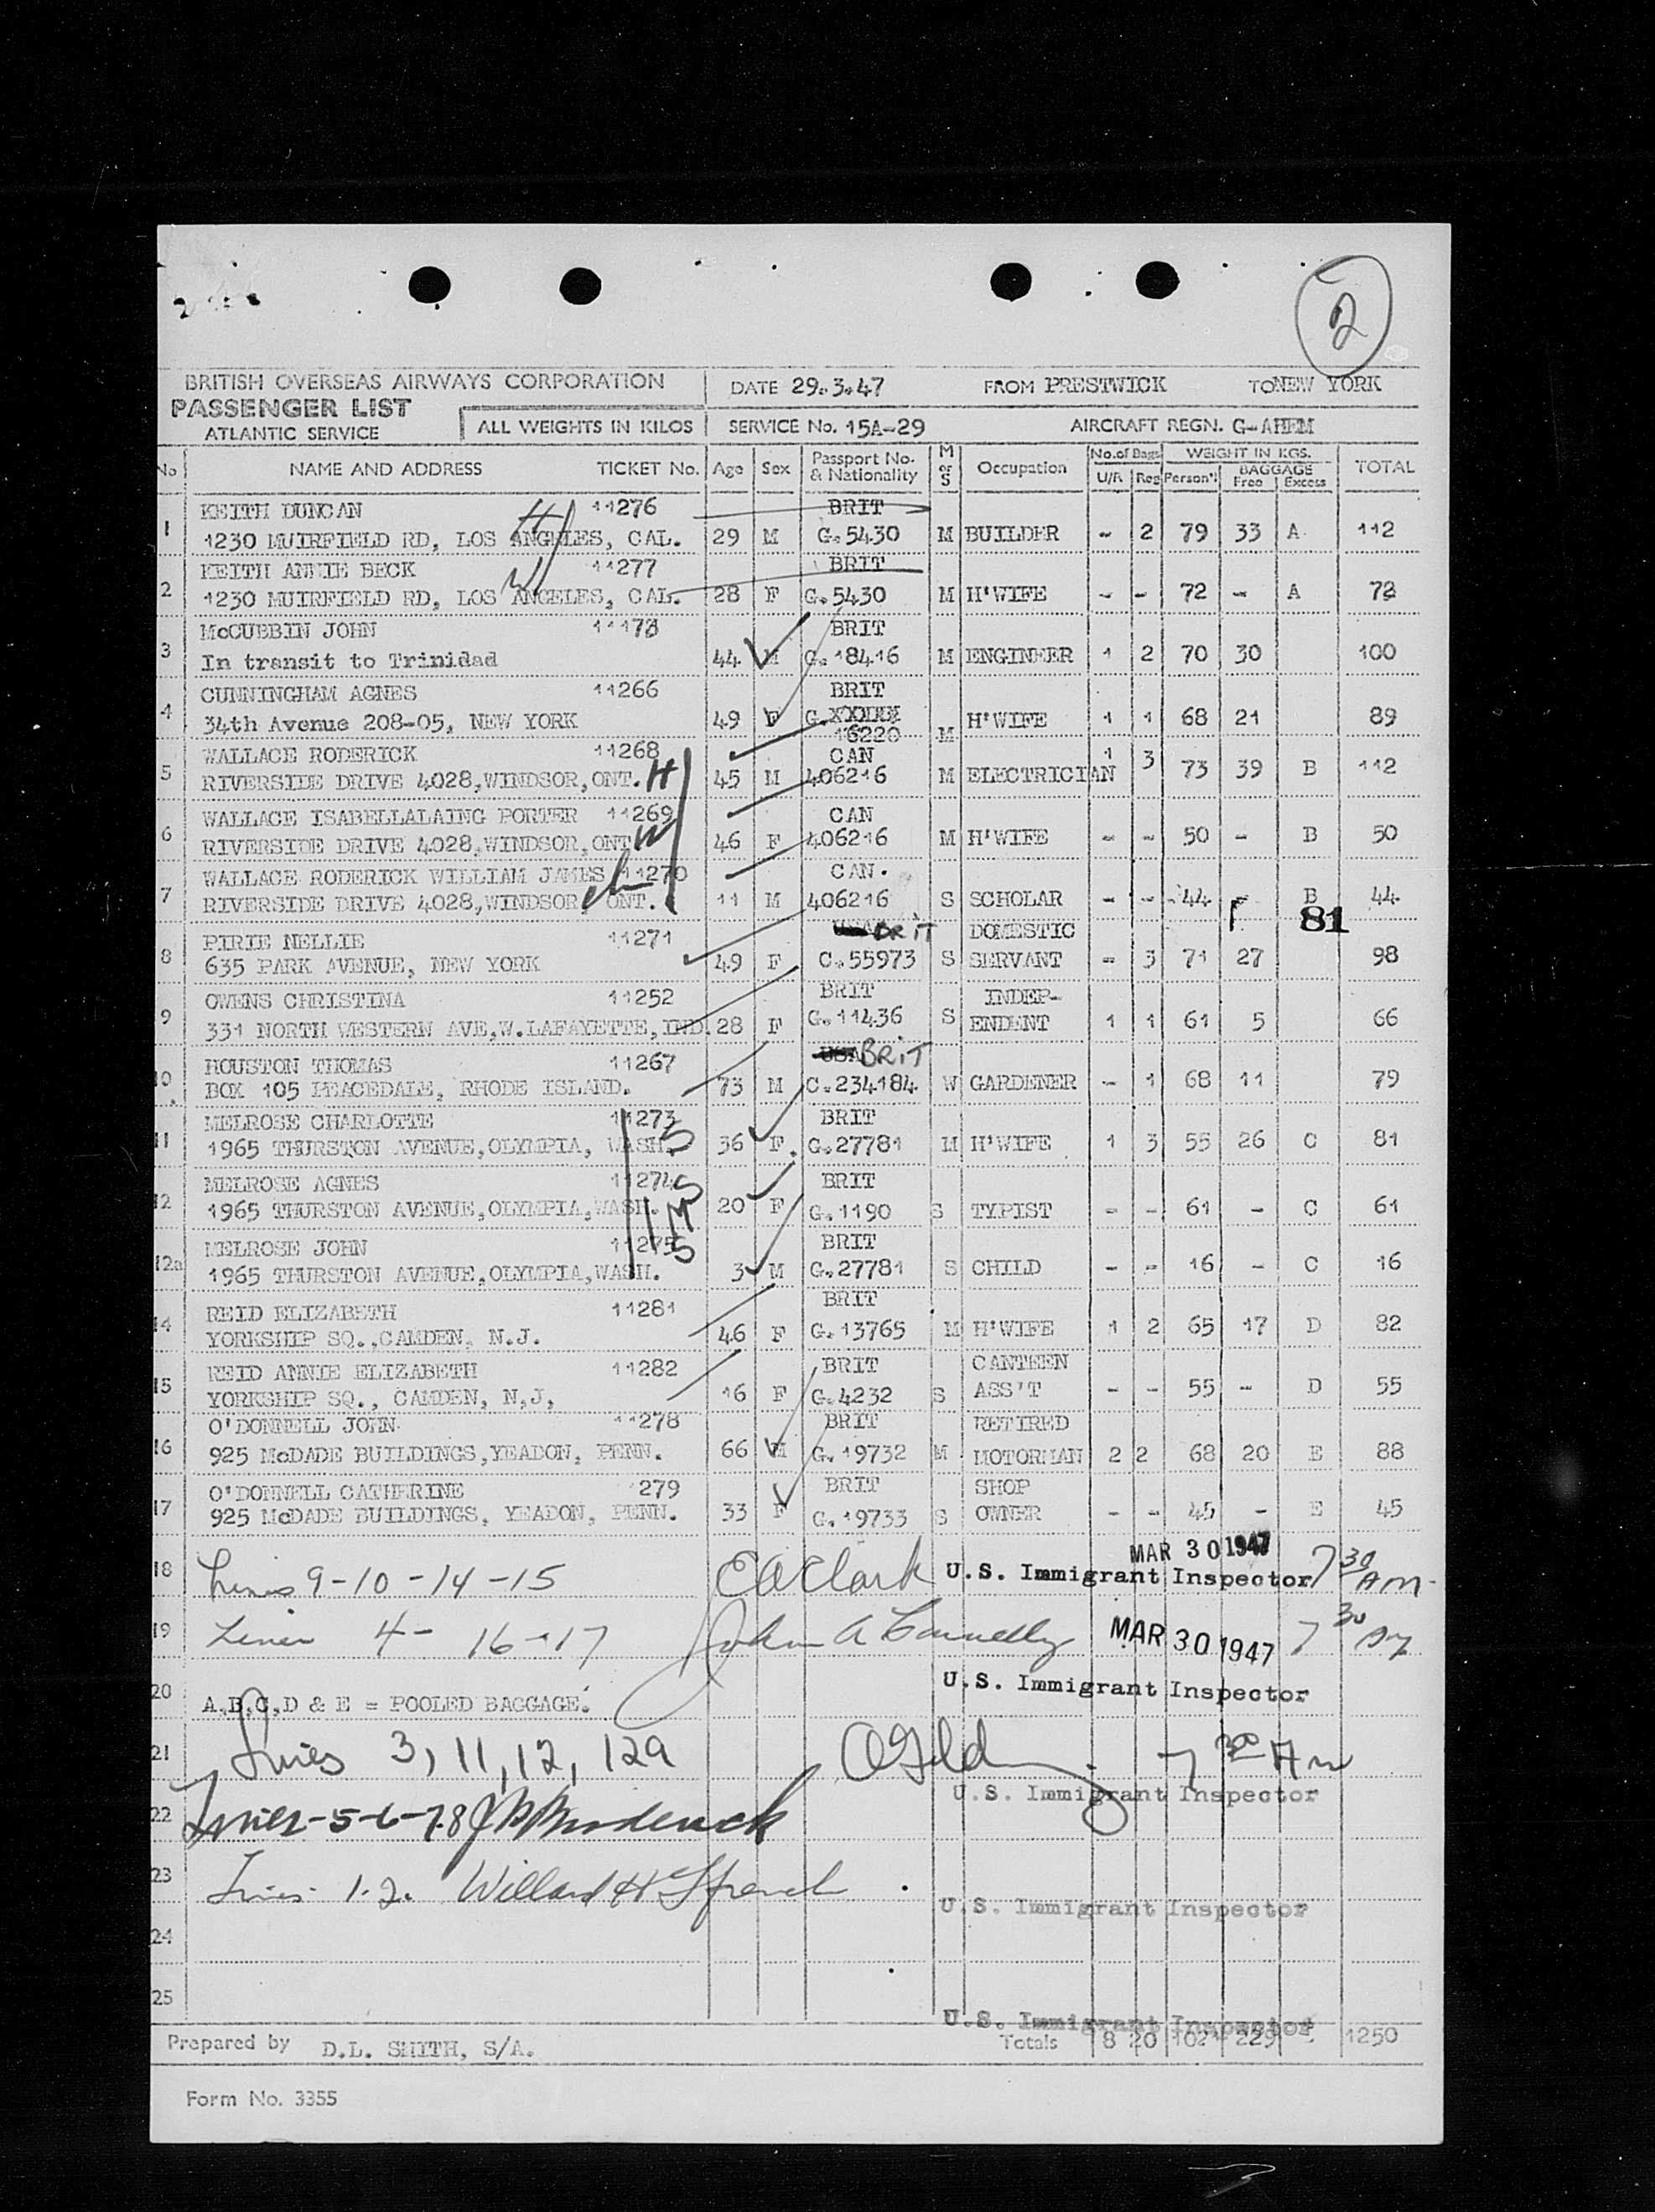 2
BRITISH OVERSEAS AIRWAYS CORPORATION DATE 29.3.47 FROM PRESTWICK TO NEW YORK
PASSENGER LIST
ATLANTIC SERVICE ALL WEIGHTS IN KILOS SERVICE No. 15A-29 AIRCRAFT REGN. G-AHEM
No NAME AND ADDRESS TICKET No. Age Sex Passport No. & Nationality M or S Occupation No. of Bags U/R Reg WEIGHT IN KGS. Person'l BAGGAGE Free Excess TOTAL
KEITH DUNCAN 11276 BRIT
1 1230 MUIRFIELD RD, LOS ANGELES, CAL. H 29 M G.5430 M BUILDER - 2 79 33 A 112
KEITH ANNIE BECK 11277 BRIT
2 1230 MUIRFIELD RD, LOS ANGELES, CAL. W 28 F G.5430 M H'WIFE - - 72 - A 72
McCUBBIN JOHN 11173 BRIT
3 In transit to Trinidad 44 M G.18416 M ENGINEER 1 2 70 30 100
CUNNINGHAM AGNES 11266 BRIT
4 34th Avenue 208-05, NEW YORK 49 F G.XXXXX 16220 M H'WIFE 1 1 68 21 89
WALLACE RODERICK 11268 CAN
5 RIVERSIDE DRIVE 4028,WINDSOR,ONT. H 45 M 406216 M ELECTRICIAN 1 3 73 39 B 112
WALLACE ISABELLALAING PORTER 11269 CAN
6 RIVERSIDE DRIVE 4028,WINDSOR,ONT W 46 F 406216 M H'WIFE - - 50 - B 50
WALLACE RODERICK WILLIAM JAMES 11270 CAN.
7 RIVERSIDE DRIVE 4028,WINDSOR, ONT. ch 11 M 406216 S SCHOLAR - - 44 - B 44
81
PIRIE NELLIE 11271 USA BRIT DOMESTIC
8 635 PARK AVENUE, NEW YORK 49 F C.55973 S SERVANT - 3 71 27 98
OWENS CHRISTINA 11252 BRIT INDEP-
9 331 NORTH WESTERN AVE,W.LAFAYETTE,IND. 28 F G.11436 S ENDENT 1 1 61 5 66
HOUSTON THOMAS 11267 USA BRIT
10 BOX 105 PEACEDALE, RHODE ISLAND. 73 M C.234184 W GARDENER - 1 68 11 79
MELROSE CHARLOTTE 11273 BRIT
11 1965 THURSTON AVENUE,OLYMPIA, WASH. S 36 F. G.27781 M H'WIFE 1 3 55 26 C 81
MELROSE AGNES 11274 BRIT
12 1965 THURSTON AVENUE,OLYMPIA,WASH. 20 F G.1190 S TYPIST - - 61 - C 61
MELROSE JOHN 11275 BRIT
12a 1965 THURSTON AVENUE,OLYMPIA,WASH. 3 M G.27781 S CHILD - - 16 - C 16
REID ELIZABETH 11281 BRIT
14 YORKSHIP SQ.,CAMDEN, N.J. 46 F G.13765 M H'WIFE 1 2 65 17 D 82
REID ANNIE ELIZABETH 11282 BRIT CANTEEN
15 YORKSHIP SQ., CAMDEN, N,J, 16 F G.4232 S ASS'T - - 55 - D 55
O'DONNELL JOHN 11278 BRIT RETIRED
16 925 McDADE BUILDINGS,YEADON, PENN. 66 M G.19732 M MOTORMAN 2 2 68 20 E 88
O'DONNELL CATHERINE 279 BRIT SHOP
17 925 McDADE BUILDINGS, YEADON, PENN. 33 F G.19733 S OWNER - - 45 - E 45
MAR 30 1947
18 Lines 9-10-14-15 EA Clark U.S. Immigrant Inspector 7 30 AM
19 Lines 4- 16-17 John A Connelly MAR 30 1947 7 30
U.S. Immigrant Inspector
20 A,B,C,D & E = POOLED BAGGAGE.
21 Lines 3, 11, 12, 12a 7 30 Am
U.S. Immigrant Inspector
22 Lines-5-6-7-8
23 Lines 1-2. Willard H
U.S. Immigrant Inspector
24
25
U.S. Immigrant Inspector
Prepared by D.L. SMITH, S/A. Totals 8 20 1021 229 - 1250
Form No. 3355